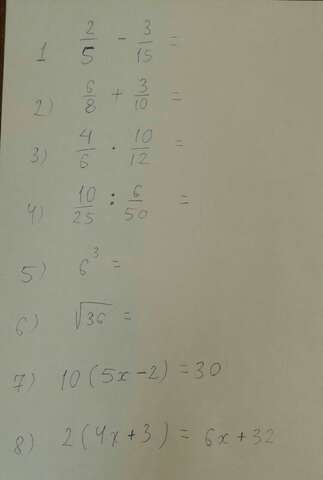 1 2/5 - 3/15 =
2) 6/8 + 3/10 =
3) 4/6 · 10/12 =
4) 10/25 : 6/50 =
5) 6³ =
6) √36 =
7) 10(5x-2) = 30
8) 2(4x+3) = 6x+32